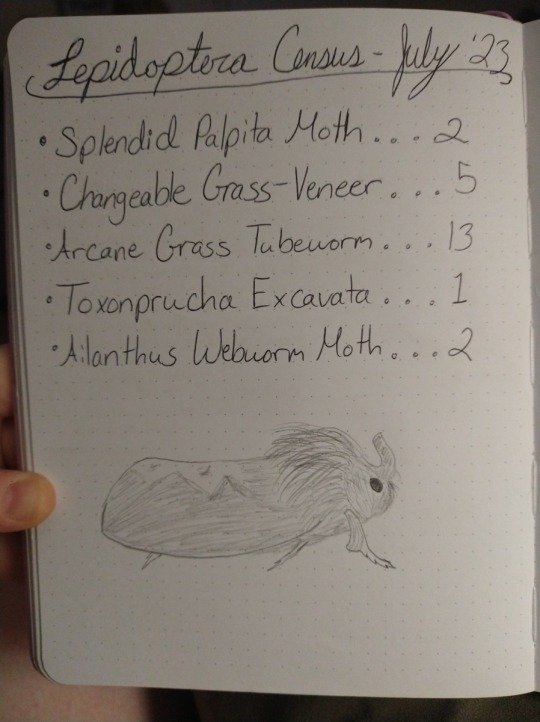 Lepidoptera Census - July '23
• Splendid Palpita Moth . . . 2
• Changeable Grass-Veneer . . . 5
• Arcane Grass Tubeworm . . . 13
• Toxonprucha Excavata . . . . 1
• Ailanthus Webworm Moth . . . 2